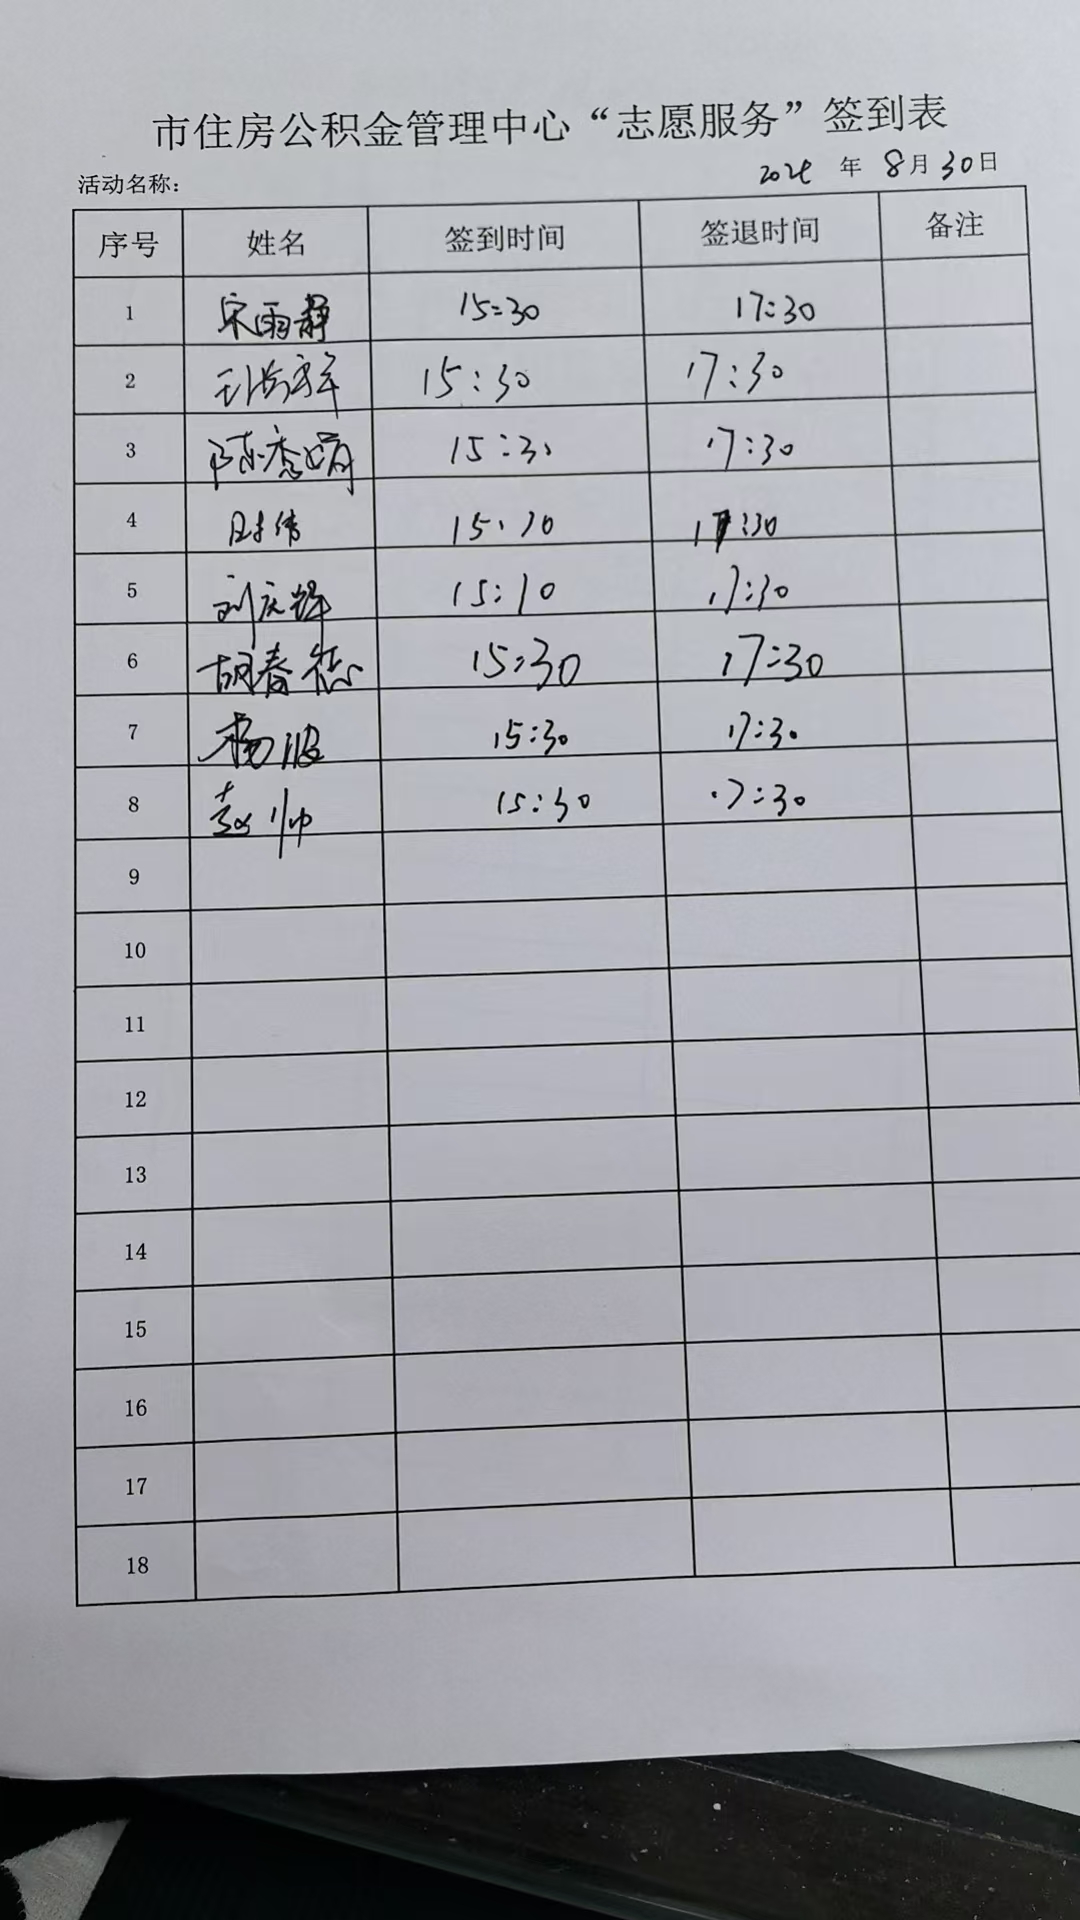 市住房公积金管理中心“志愿服务”签到表
活动名称： 2024 年 8月30日
序号 姓名 签到时间 签退时间 备注
1 宋雨静 15:30 17:30
2 15:30 17:30
3 陈秀娟 15:30 17:30
4 时伟 15:30 17:30
5 刘庆辉 15:30 17:30
6 胡春德 15:30 17:30
7 杨波 15:30 17:30
8 赵帅 15:30 17:30
9
10
11
12
13
14
15
16
17
18